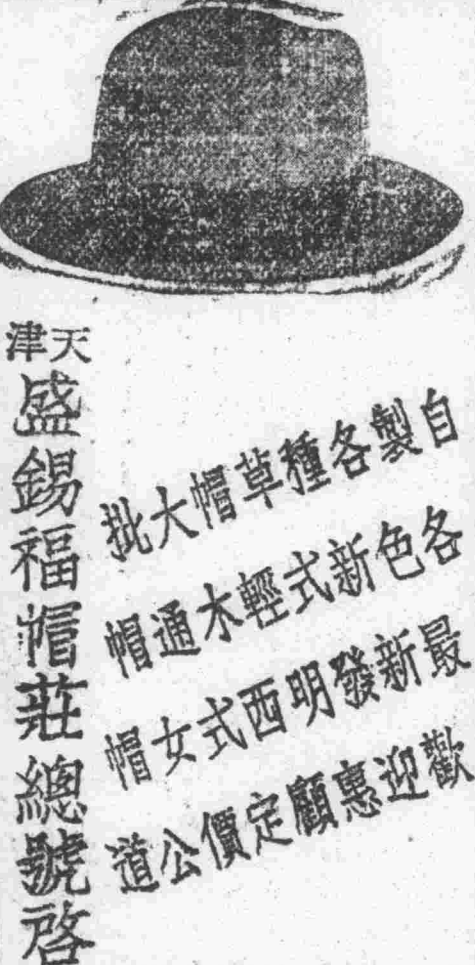 自製各種草帽大批
各色新式輕木通帽
最新發明西式女帽
歡迎惠顧定價公道
天津
盛錫福帽莊總號啓